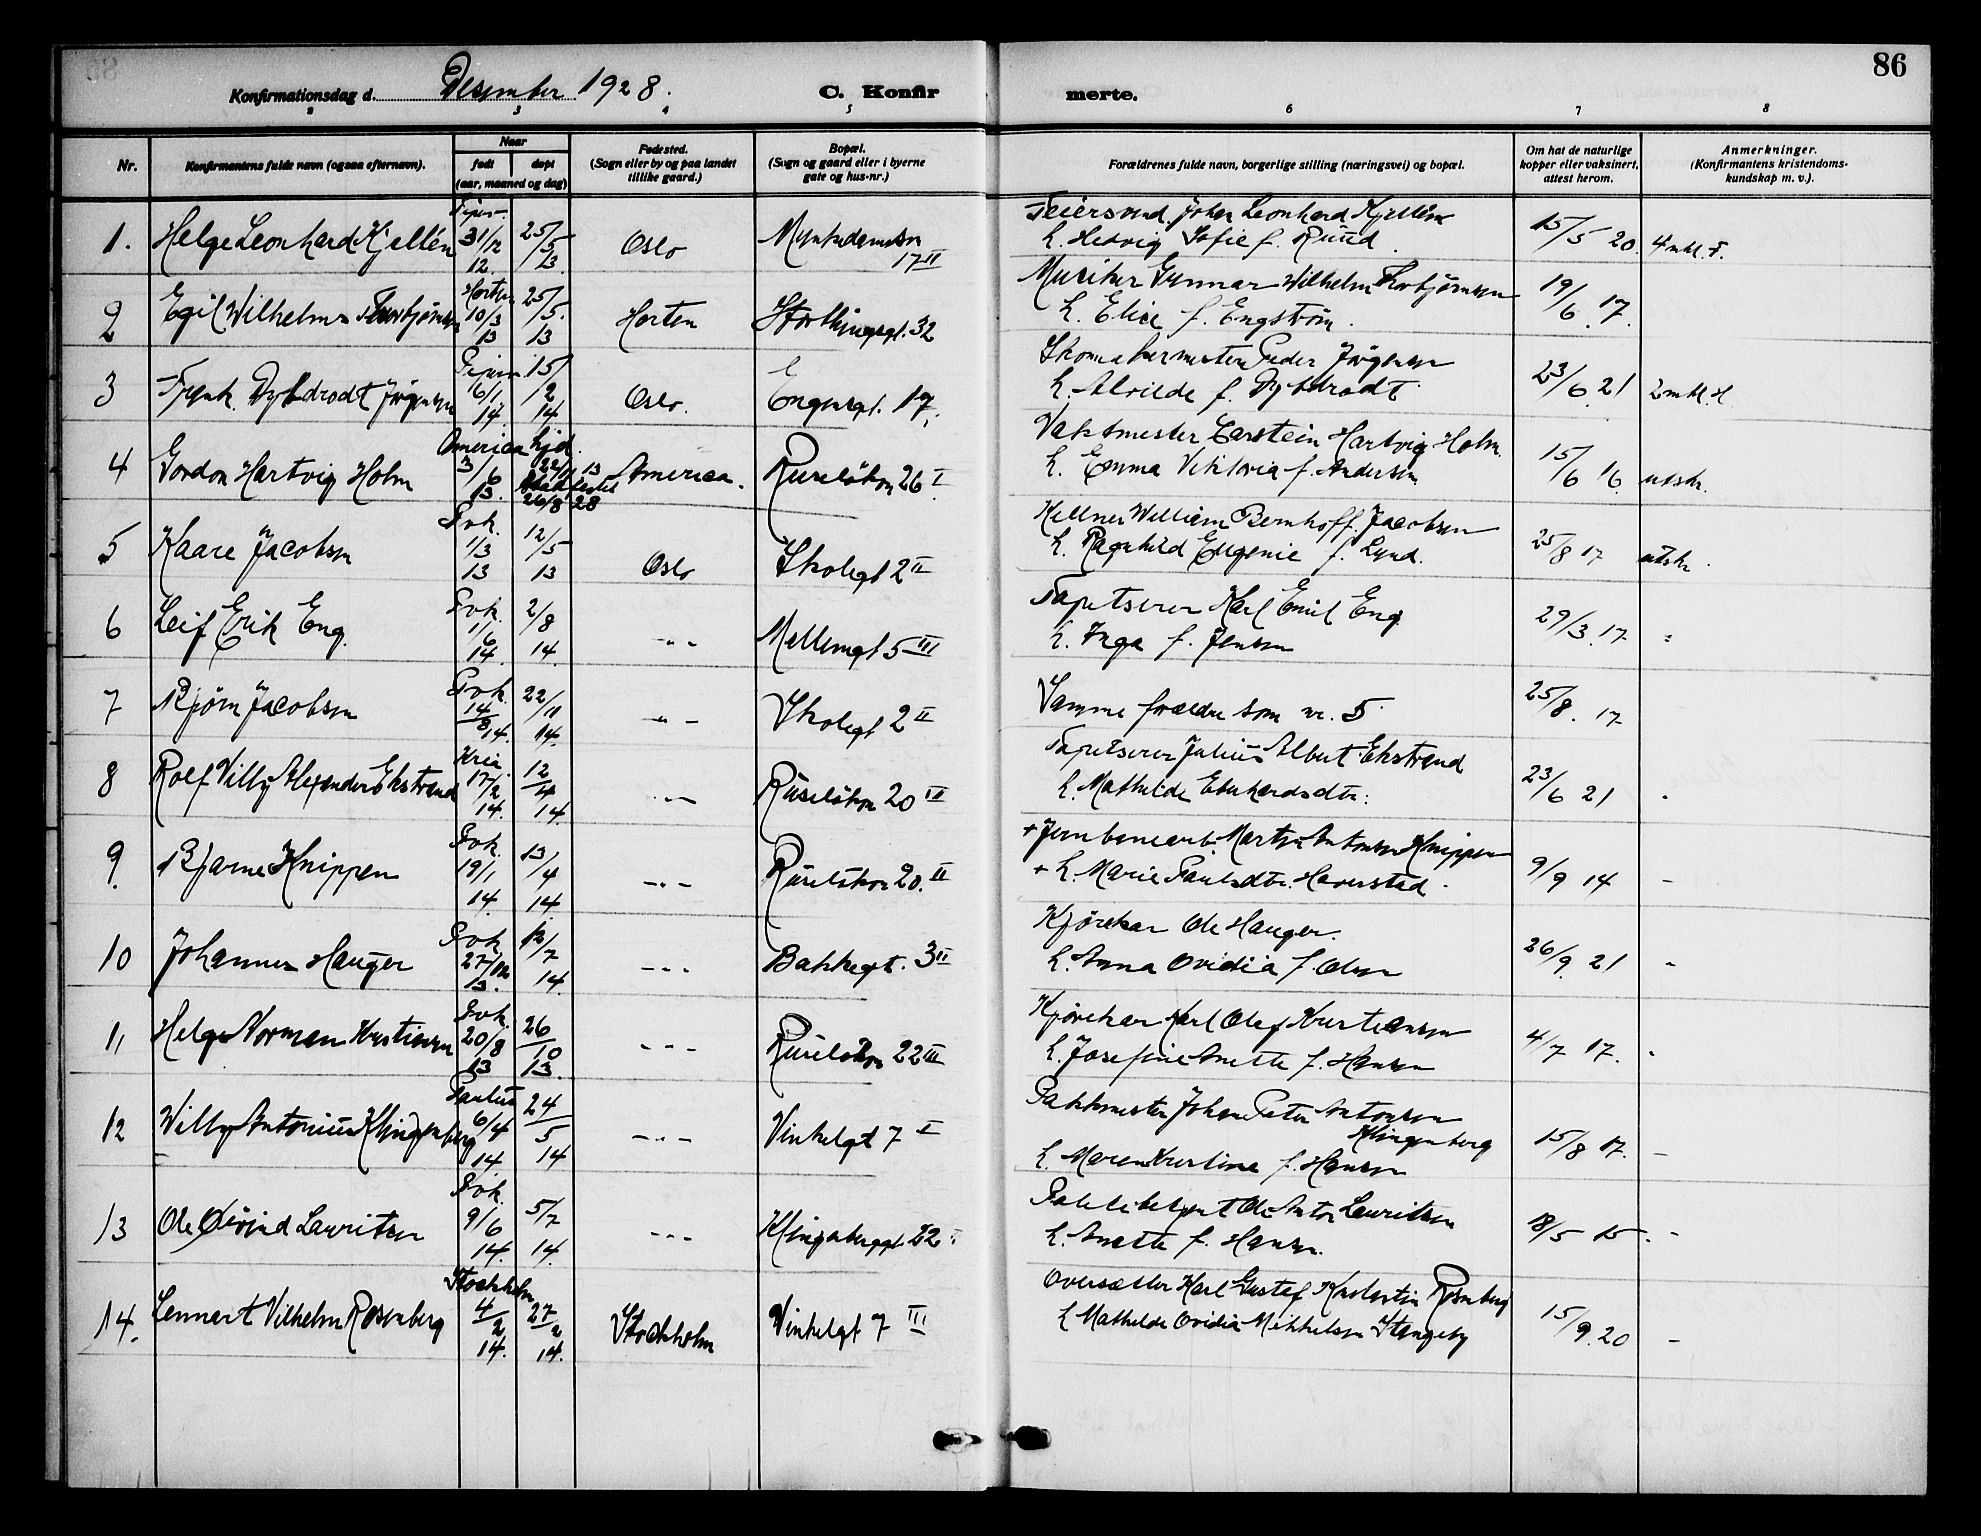 86
Konfirmationsdag d. Desember 1928.
C. Konfir
merte.
2 3 4 5 6 7 8
Nr.
Konfirmantens fulde navn (ogsaa efternavn).
Naar
født
døpt
(aar, maaned og dag)
Fødested.
(Sogn eller by og paa landet
tillike gaard.)
Bopæl.
(Sogn og gaard eller i byerne
gate og hus-nr.)
Forældrenes fulde navn, borgerlige stilling (næringsvei) og bopæl.
Om hat de naturlige
kopper eller vaksinert,
attest herom.
Anmerkninger.
(Konfirmantens kristendoms-
kundskap m. v.).
1. Helge Leonhard Kjellén 31/12 12. 25/5 13. Oslo 17 II
Johan Leonhard Kjellén
h. Hedvig Sofie f. Ruud 15/5 20.
2 Egil Wilhelm Thorbjørnsen Horten 10/3 13 25/5. 13 Horten Storthingsgt. 32
Musiker Gunnar Wilhelm Thorbjørnsen
h. Elise f. Engstrøm. 19/6 17.
3 Dybdrodt Jørgensen 6/1 14. 15/2 14 Oslo. Engensgt. 17.
Skomakermester Peder Jørgensen
h. Alvilde f. Dybdrodt 23/6 21
4 Gordon Hartvig Holm America 3/6 13. 26/8 28 America. Ruseløkvn 26 I
Vaktmester Carstein Hartvig Holm
h. Emma Viktoria f. Andersen 15/6 16. utskr.
5 Kaare Jacobsen Fvk. 1/3 13 12/5 13 Oslo Skolegt 2 II
Kellner William Bernhoff Jacobsen
h. Ragnhild Eugenie f. Lynd. 25/8 17 utskr.
6 Leif Erik Eng. Fvk. 1/6 14. 2/8 14. -"- Mellemgt 5 III
Tapetserer Karl Emil Eng
h. Inga f. Jensen 29/3 17. "
7 Bjørn Jacobsen Fvk. 14/8 14. 22/11 14. -"- Skolegt 2 II
Samme forældre som nr. 5 25/8. 17
8 Rolf Villy Alexander Ekstrand Kria. 17/2 14. 12/4 14. -"- Ruseløkvn 20 III
Tapetserer Julius Albert Ekstrand
h. Mathilde Eberhardsdtr. 23/6 21 "
9. Bjarne Knippen Fvk. 19/1 14. 13/4 14. -"- Ruseløkvn 20. II
+ Jernbanearb. Martin Antonsen Knippen
+ h. Marie Paulsdtr. Haverstad. 9/9 14 -
10 Johannes Hauger Fvk. 27/12 13. 12/7 14. -"- Bakkegt. 3 II
Kjørekar Ole Hauger.
h. Anna Ovidia f. Olsen 26/9. 21 -
11 Helge Norman Kristiansen Fvk. 20/8 13 26/10 13. -"- Ruseløkvn 22 III
Kjørekar Karl Olaf Kristiansen
h. Josefine Anette f. Hansen 4/7 17. "
12 Willy Antonius Klingenberg Paulus 6/4 14 24/5 14 -"- Vinkelgt 7 I
Pakkmester Johan Peter Antonsen
Klingenberg
h. Maren Kristine f. Hansen 15/8 17. -
13 Ole Øivind Lauritsen Fvk. 9/6 14. 5/7 14. -"- Klingenberggt. 22
Ole Anton Lauritsen
h. Anette f. Hansen. 18/5 15. -
14. Lennart Vilhelm Rosenberg Stockholm 4/2 14. 27/2 14. Stockholm Vinkelgt 7 III
Oversætter Karl Gustaf Konstantin Rosenberg
h Mathilde Ovidia Mikkelsen Stangeby 15/9. 20 -